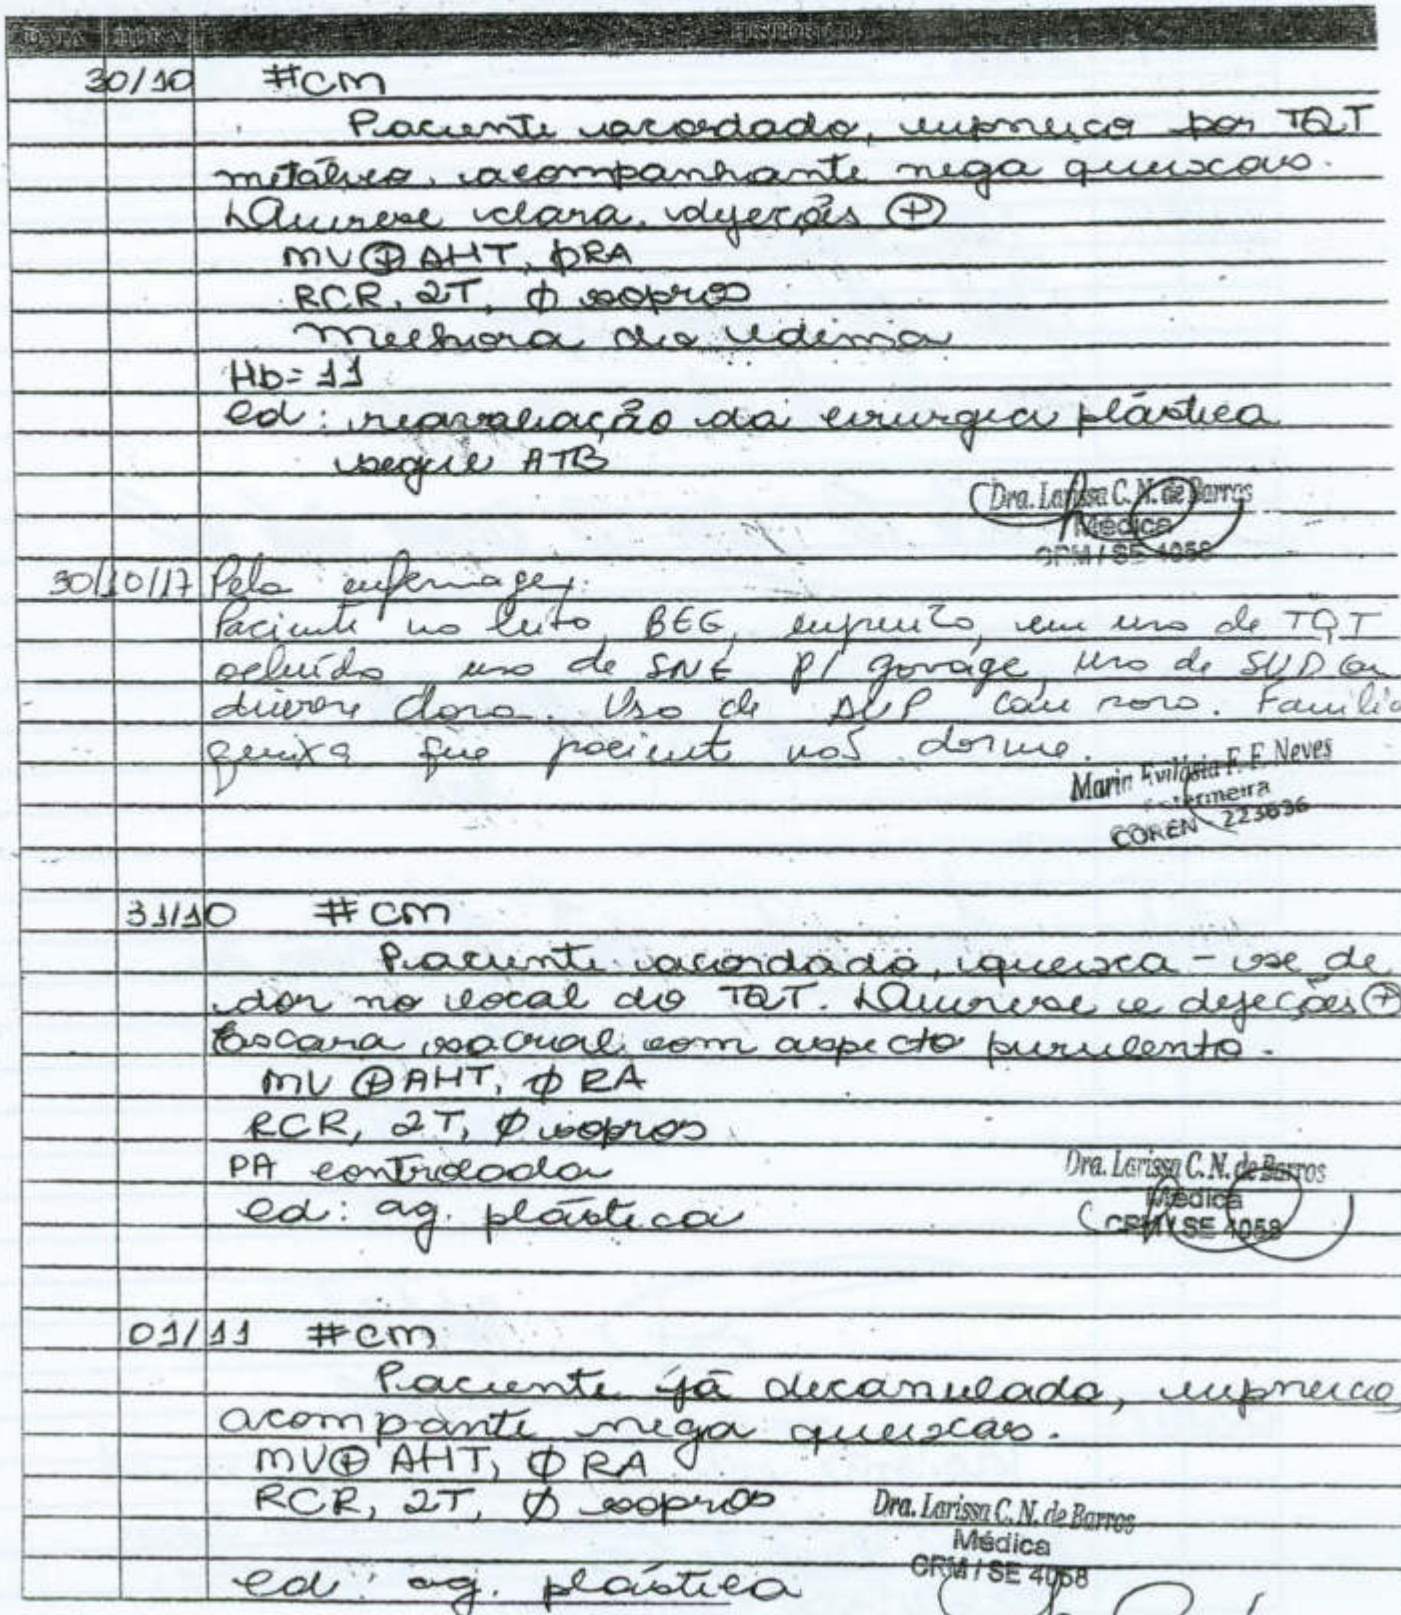 DATA HORA HISTÓRICO
30/10 #CM
Paciente acordado, eupneico por TQT
metálica, acompanhante nega queixas.
Diurese clara, dejeções ⊕
MV⊕ AHT, ØRA
RCR, 2T, Ø sopros
Melhora do edema
Hb=11
cd: reavaliação da cirurgia plástica
segue ATB
Dra. Larissa C. N. de Barros
Médica
CRM / SE 4058
30/10/17 Pela enfermagem:
Paciente no leito, BEG, eupneico, em uso de TQT
ocluído uso de SNE p/ gavage, uso de SVD com
diurese clara. Uso de AVP com soro. Família
queixa que paciente não dorme.
Maria Evilásia F. F. Neves
Enfermeira
COREN 223636
31/10 #CM
Paciente acordado, queixa-se de
dor no local do TQT. Diurese e dejeções ⊕
Escara sacral com aspecto purulento.
MV ⊕ AHT, Ø RA
RCR, 2T, Ø sopros
PA controlada
Dra. Larissa C. N. de Barros
Médica
CRM / SE 4058
cd: ag. plástica
01/11 #CM
Paciente já decanulado, eupneico,
acompante nega queixas.
MV⊕ AHT, Ø RA
RCR, 2T, Ø sopros
Dra. Larissa C. N. de Barros
Médica
CRM / SE 4058
cd: ag. plástica